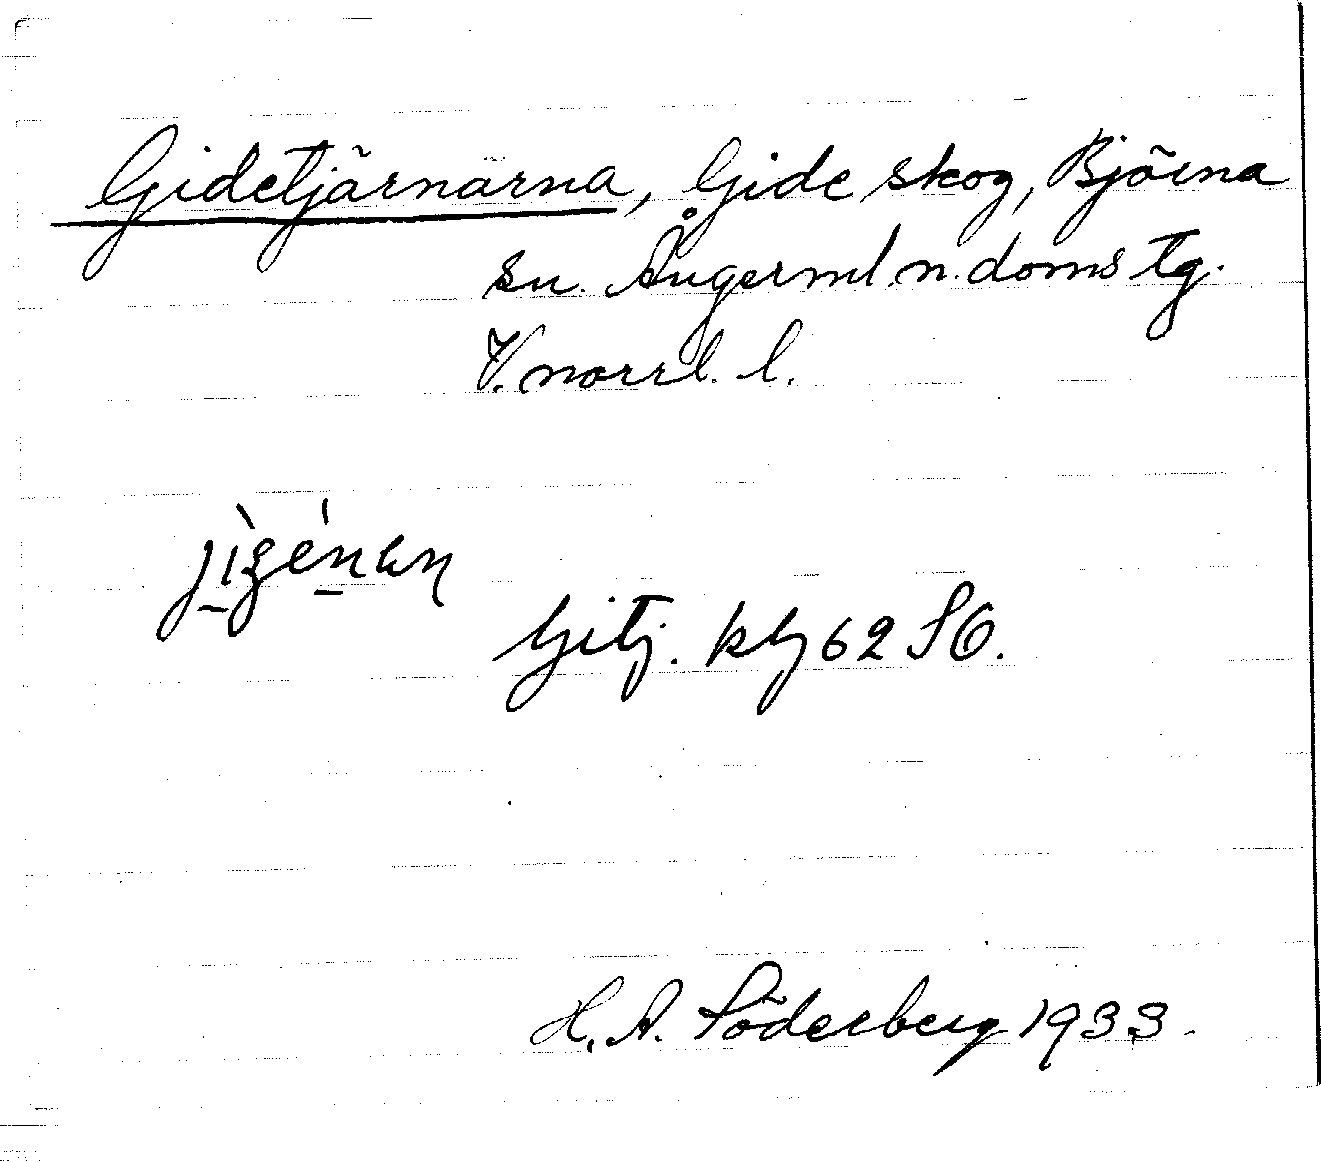 Gidetjärnarna, Gide skog, Björna
sn. Ångerml. n. doms tg.
V. norrl. l.
Gitj. kbj 62 SO.
H. A. Söderberg 1933.